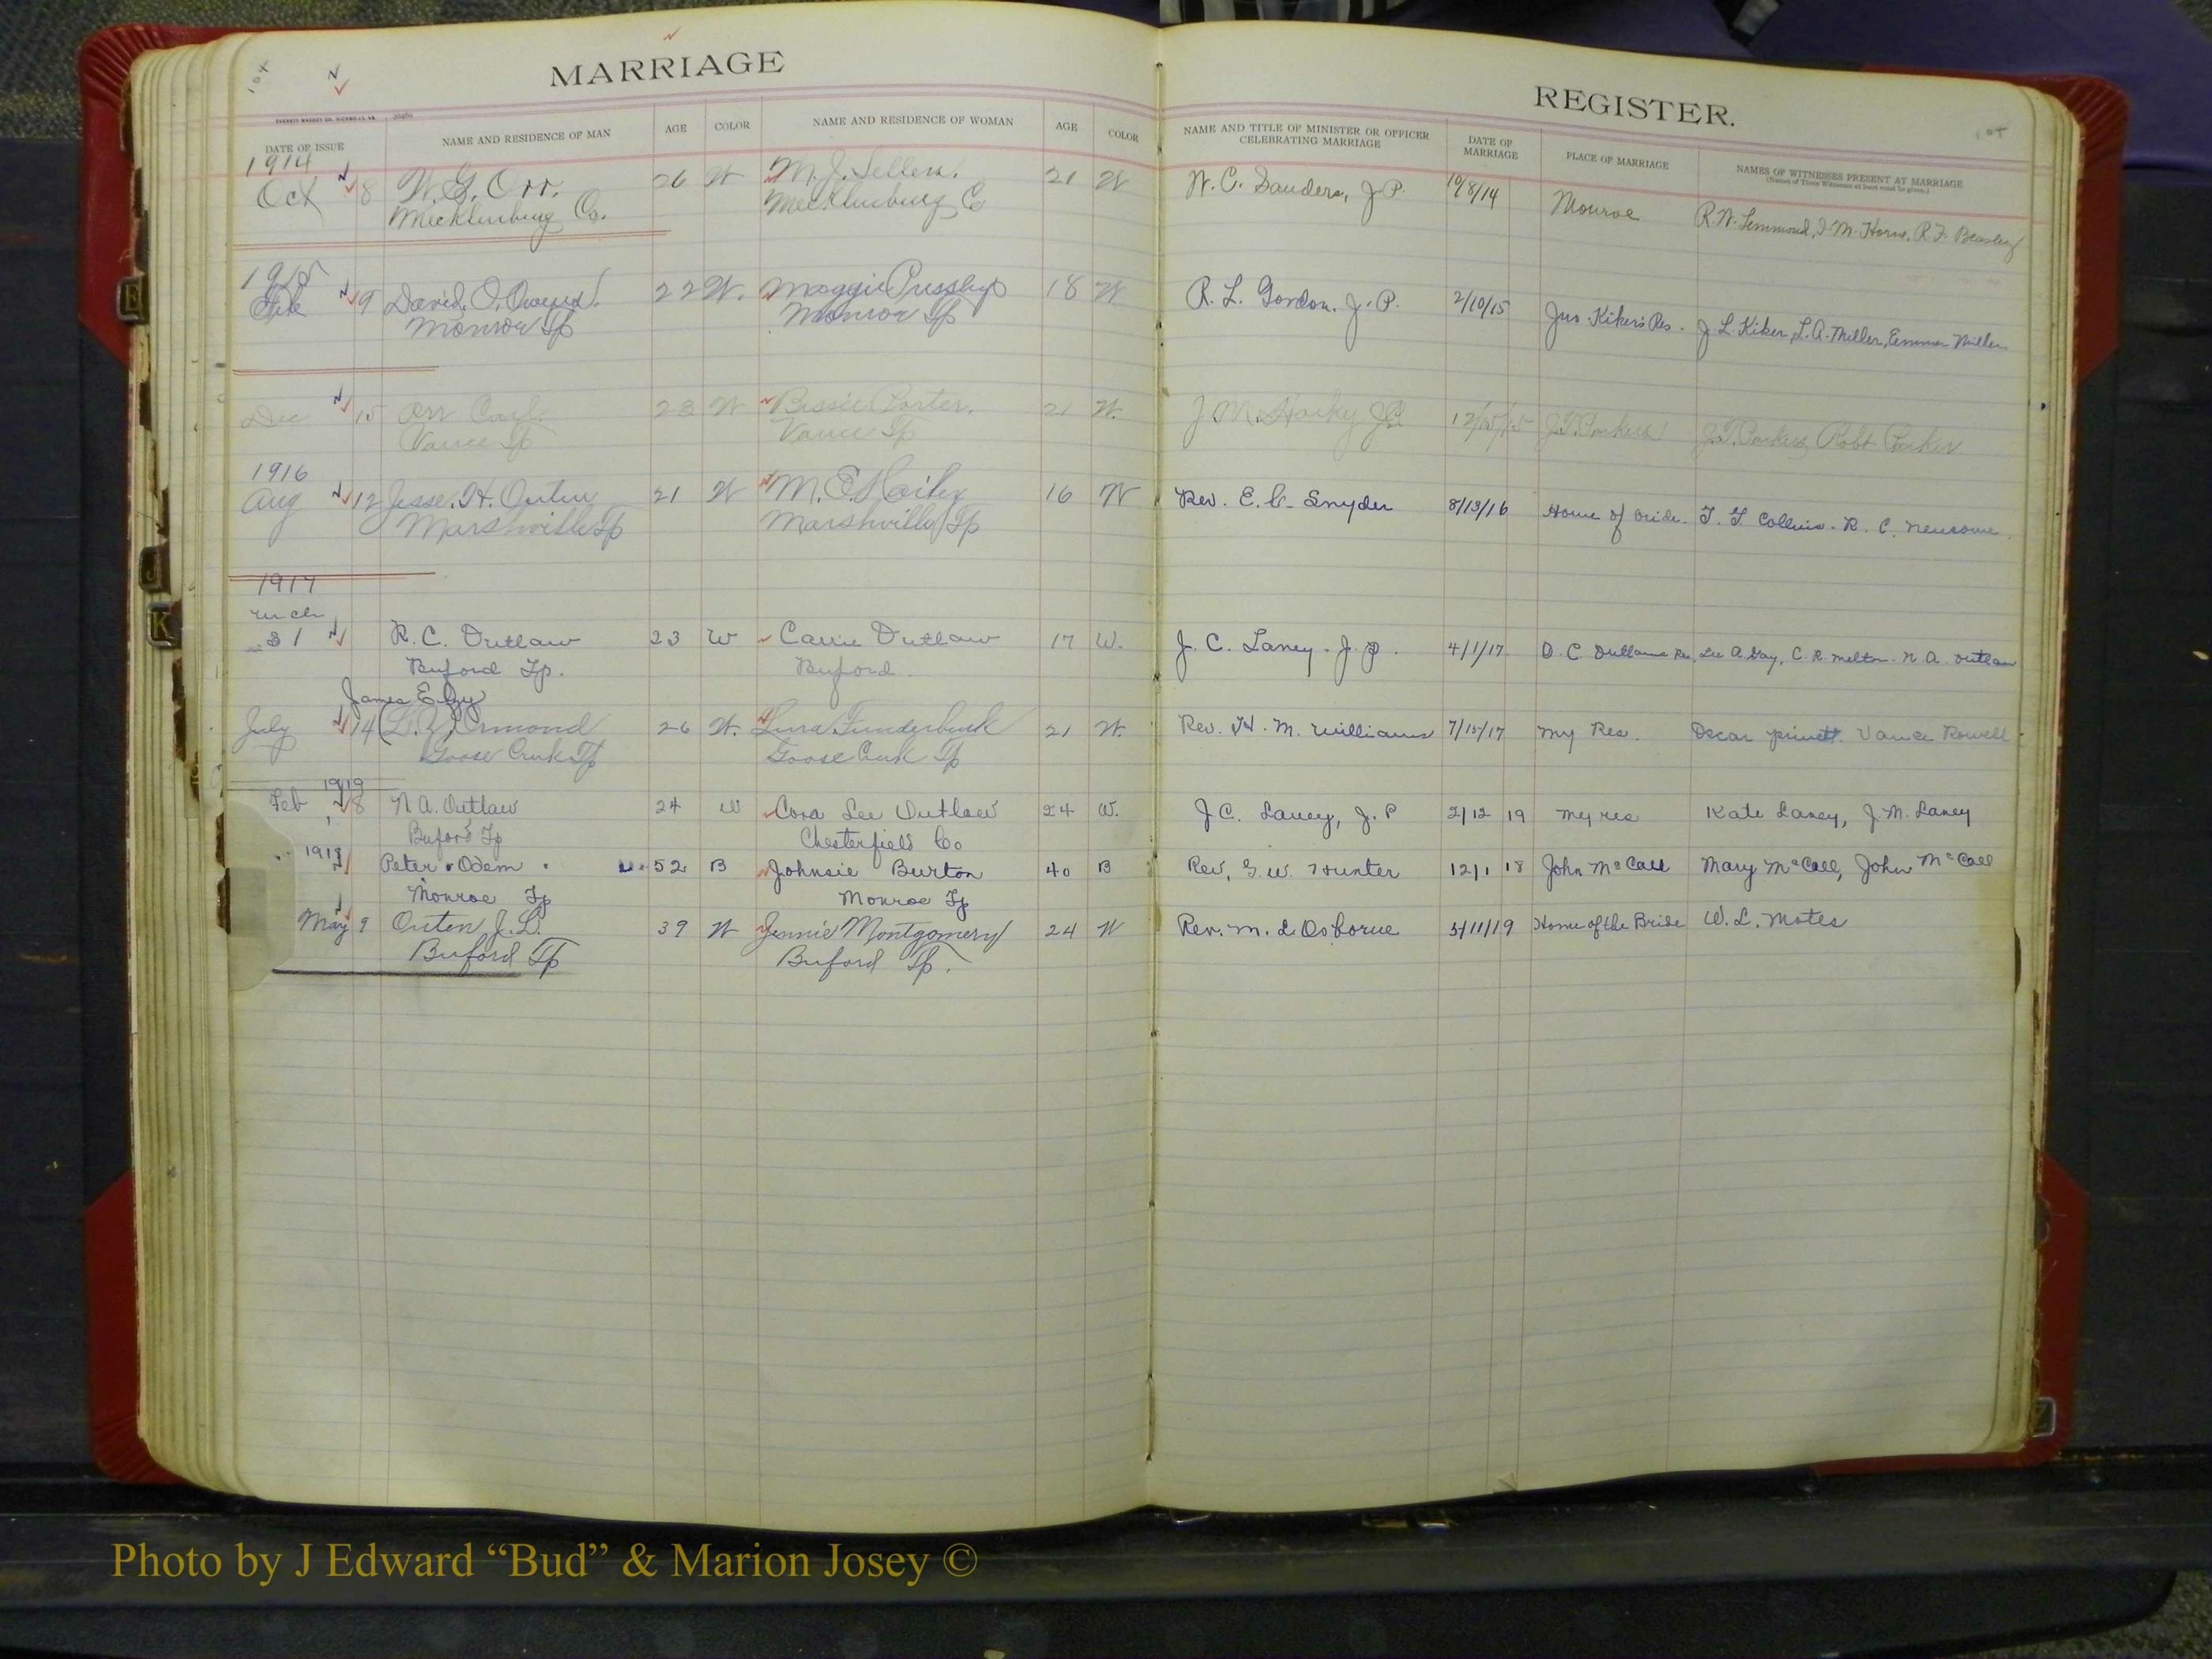 MARRIAGE
REGISTER.
104
104
EVERETT WADDEY CO. RICHMOND, VA.
DATE OF ISSUE
NAME AND RESIDENCE OF MAN
AGE
COLOR
NAME AND RESIDENCE OF WOMAN
AGE
COLOR
NAME AND TITLE OF MINISTER OR OFFICER
CELEBRATING MARRIAGE
DATE OF
MARRIAGE
PLACE OF MARRIAGE
NAMES OF WITNESSES PRESENT AT MARRIAGE
(Names of Three Witnesses at least must be given.)
1914
Oct 8 W. G. Orr. 26 W M. J. Sellers. 21 W W. C. Sanders, J.P. 10/8/14 Monroe R. W. Lemmond, J. M. Horn, R. F. Beasley
Mecklenburg Co. Mecklenburg Co
1915
Feb 9 David. O. 22 W. Maggie Pressley 18 W R. L. Gordon. J. P. 2/10/15 Jno Kiker's Res. J. L. Kiker, L. A. Miller, Emma Miller
Monroe Tp Monroe Tp
Dec 15 Orr Carl. 23 W Bessie Porter. 21 W. J M Harky JP 12/15/15 J. T. Parkers Robt Parker
Vance Tp Vance Tp
1916
Aug 12 Jesse. H. Outen 21 W M. E. Haily 16 W Rev. E. C. Snyder 8/13/16 Home of bride. T. F Collins - R. C. Newsome.
Marshville Tp Marshville Tp
1917
31 R. C. Outlaw 23 W Carrie Outlaw 17 W. J. C. Laney. J. P. 4/1/17 D. C. Outlaws Res Lee A. Gay, C. R. Melton. N. A. Outlaw
Buford Tp. Buford.
James Elzy
July 14 (L. Z.) Ormond 26 W. Lura Funderburk 21 W. Rev. H. M. Williams 7/15/17 My Res. Oscar Privett. Vance Rowell
Goose Creek Tp Goose Creek Tp
1919
Feb 8 N A. Outlaw 24 W Cora Lee Outlaw 24 W. J. C. Laney, J. P 2/12 19 My res Kate Laney, J. M. Laney
Buford Tp Chesterfield Co
1918
Peter Odem 52 B Johnsie Burton 40 B Rev, G. W. Hunter 12/1 18 John McCall Mary McCall, John McCall
Monroe Tp Monroe Tp
May 9 Outen, J. L. 39 W Jennie Montgomery 24 W Rev. M. L. Osborne 5/11/19 Home of the Bride W. L. Motes
Buford Tp Buford Tp.
E
J
K
Photo by J Edward “Bud” & Marion Josey ©